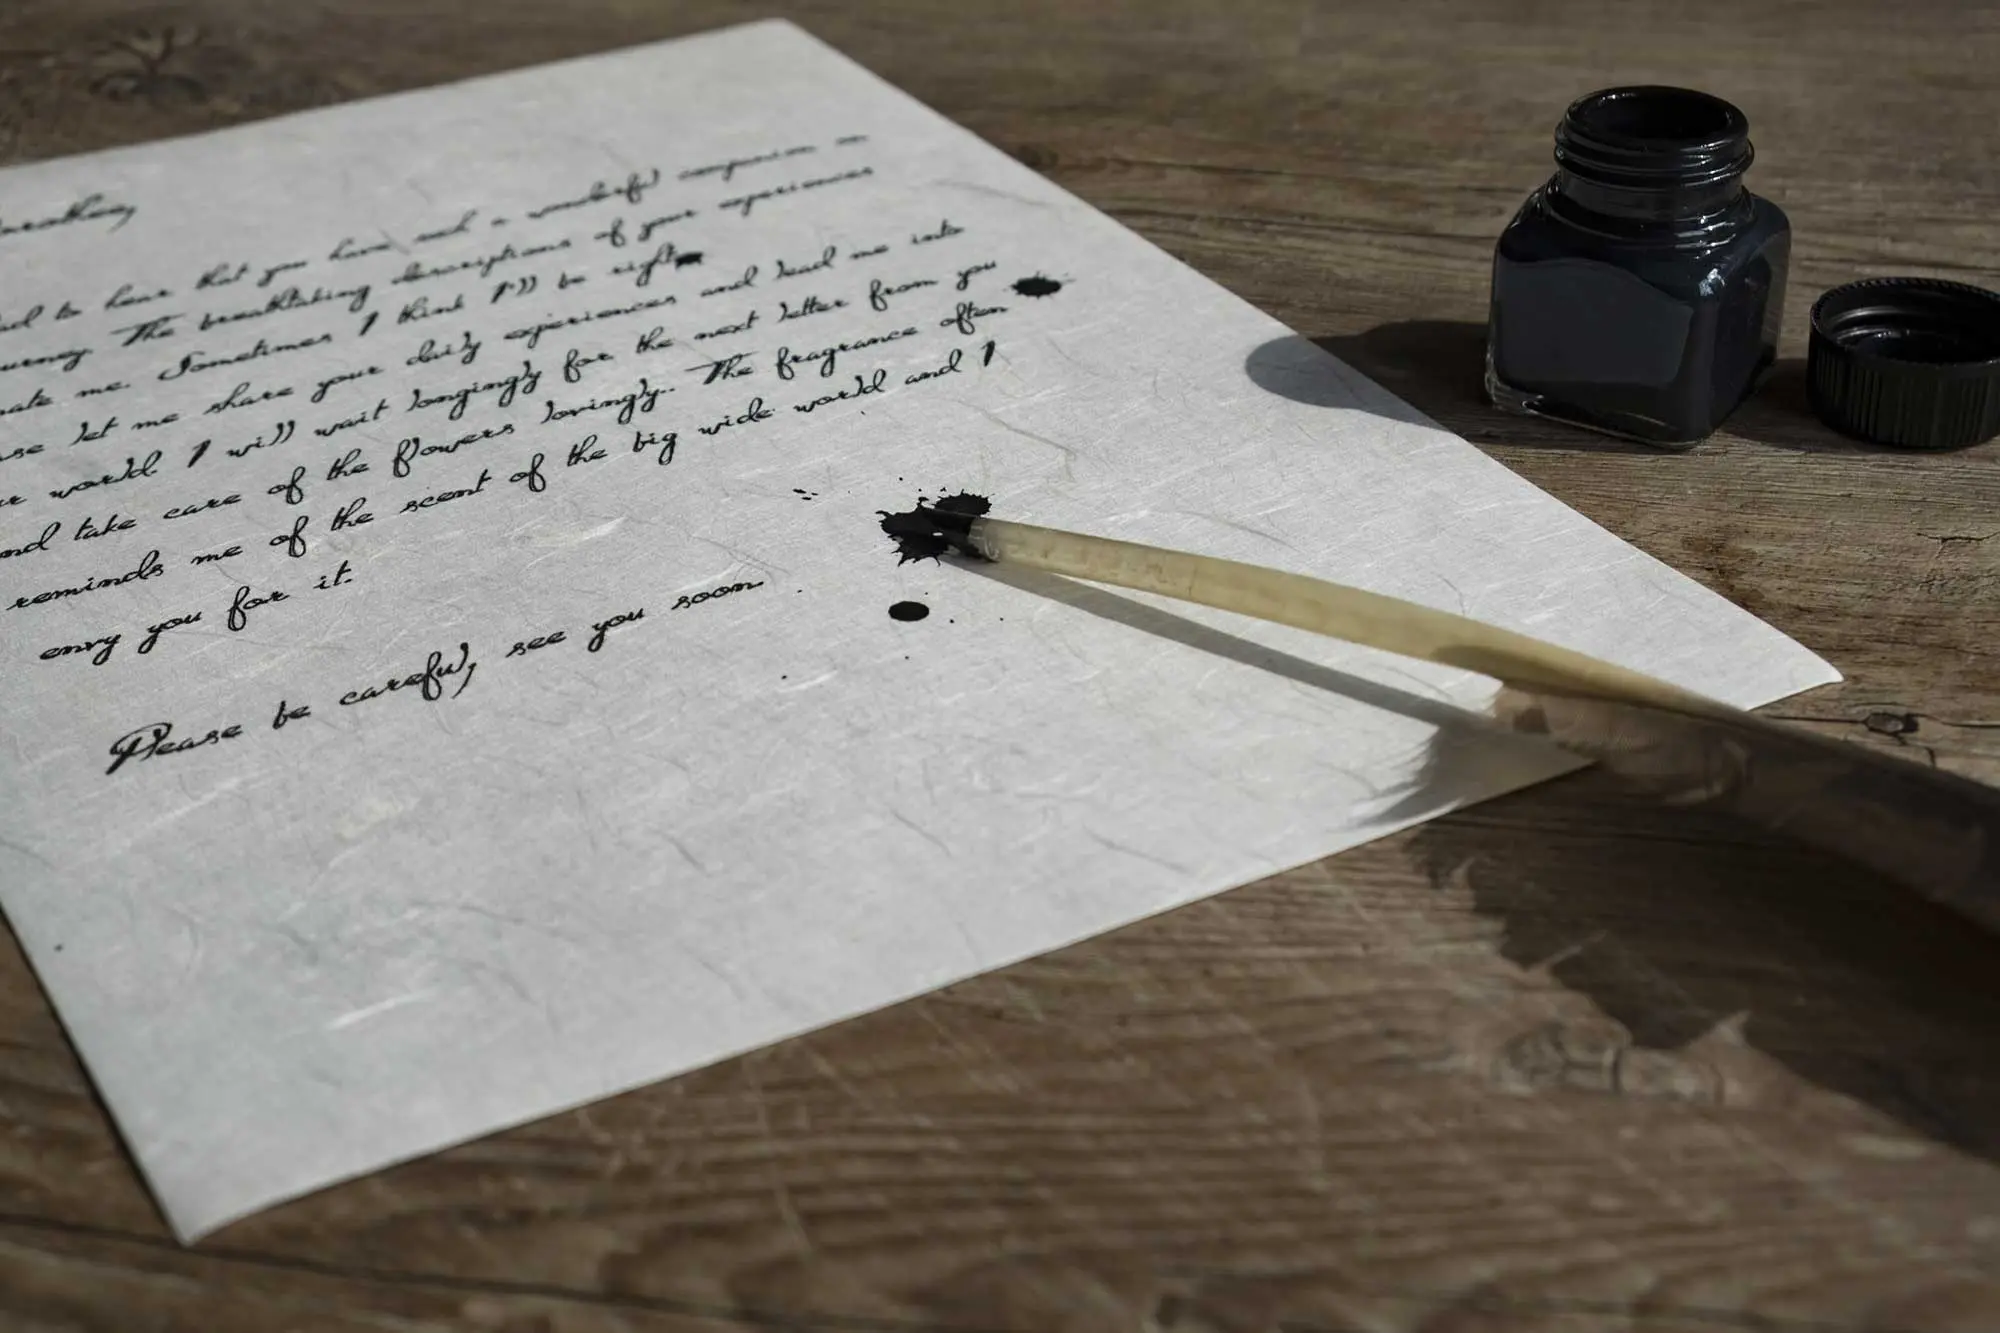 to hear that you have such a wonderful companion on
The breathtaking descriptions of your experiences
me. Sometimes I think I'll be right
let me share your daily experiences and lead me into
world. I will wait longingly for the next letter from you
and take care of the flowers lovingly.. The fragrance often
reminds me of the scent of the big wide world and I
envy you for it.
Please be careful, see you soon